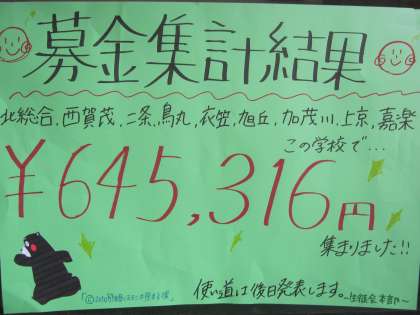 募金集計結果
北総合,西賀茂,二条,烏丸,衣笠,旭丘,加茂川,上京,嘉楽
この学校で…
¥645,316円
集まりました!!
使い道は後日発表します。
生徒会本部